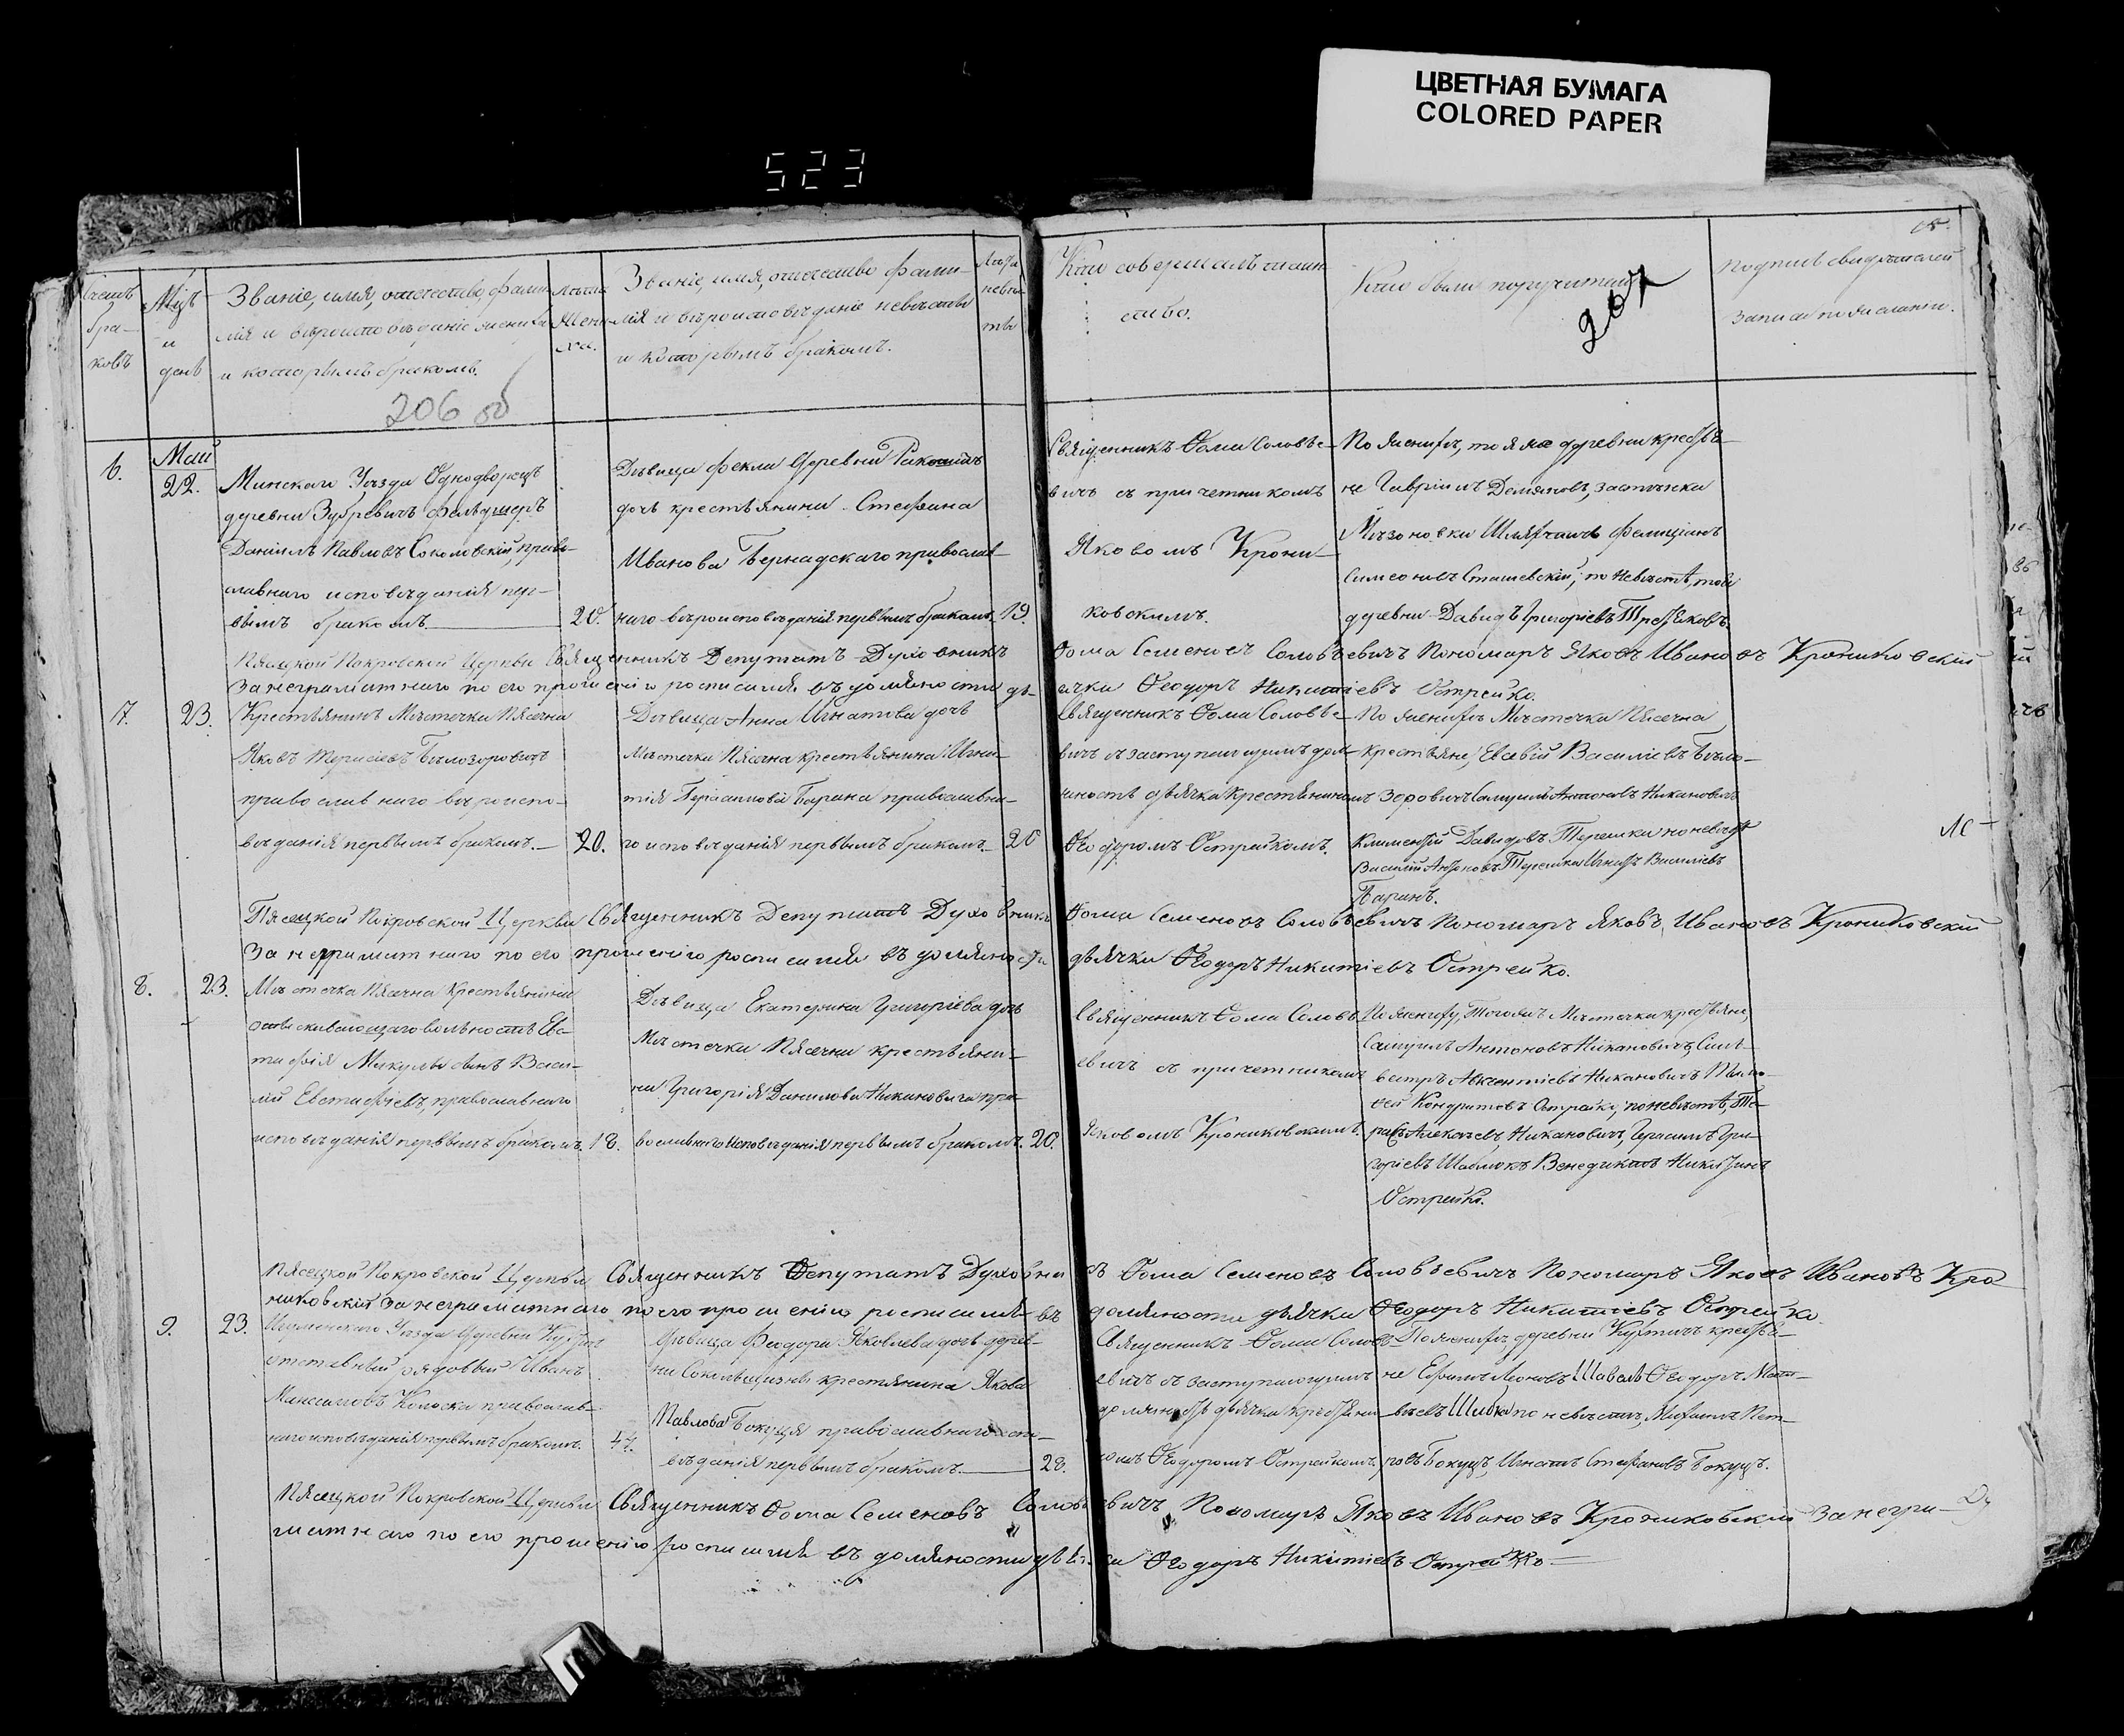 ЦВЕТНАЯ БУМАГА
COLORED PAPER
523
Счетъ бра-
ковъ
Мцъ
и
день
Званіе, имя, отчество, фами-
лія и вѣроисповѣданіе жениха
и которымъ бракомъ.
206 об
Лѣта
жени
ха.
Званіе, имя, отчество фами-
лія и вѣроисповѣданіе невѣсты
и которымъ бракомъ.
Лѣта
невѣс
ты
Кто совершалъ таин
ство.
Кто были поручители
207
Подпись свидѣтелей
записи по желанію.
6.
Май
22.
Минскаго Уѣзда Однодворецъ
деревни Зубревичъ фельдшеръ
Даніилъ Павловъ Соколовскій, право-
славнаго исповѣданія пер-
вымъ бракомъ
20.
Дѣвица Фекла Деревни
дочь крестьянина Стефана
Иванова Бернадскаго православ-
наго вѣроисповѣданія первымъ бракомъ
19.
Священникъ Фома Соловье-
вичъ съ причетникомъ
Яковомъ Крони-
ковскимъ.
По женихѣ, тоя же деревни крестья-
не Гавріилъ Демяновъ, застѣнка
Шляхтичъ Фелиціанъ
Симеоновъ Сташевскій; по невѣстѣ, той
деревни Давидъ Григоріевъ Третьяковъ.
Пясецкой Покровской Церкви Священникъ Депутатъ Духовникъ Фома Семеновъ Соловьевичъ Пономаръ Яковъ Ивановъ Крониковскій
За неграматнаго по его прошенію росписался въ должности дьячка Феодоръ Никитіевъ Острейко.
7.
23.
Крестьянинъ Мѣстечка Пясечна
Яковъ Бѣлозоровичъ
православнаго вѣроиспо-
вѣданія первымъ бракомъ.
20.
Дѣвица Анна Игнатова дочь
Мѣстечка Пясечна крестьянина Игна-
тія Герасимова Барана православна-
го исповѣданія первымъ бракомъ.
20
Священникъ Фома Соловье-
вичъ съ заступающимъ дол-
жность дьячка Крестьяниномъ
Феодоромъ Острейкомъ.
По женихѣ Мѣстечка Пясечна
крестьяне, Евсевій Василіевъ Бѣло-
зоровичъ Самуилъ Антоновъ Никановичъ
Климентій Давидовъ Терешка по невѣстѣ
Василій Антоновъ Терешка Игнатъ Василіевъ
Баранъ.
Пясецкой Покровской Церкви Священникъ Депутатъ Духовникъ Фома Семеновъ Соловьевичъ Пономаръ Яковъ Ивановъ Крониковскій
За неграматнаго по его прошенію росписался въ должности дьячка Феодоръ Никитіевъ Острейко.
8.
23.
Мѣстечка Пясечна Крестьянина
отыскивающаго вольность Евс-
тафія Микулы сынъ Васи-
лій Евстафіевъ, православнаго
исповѣданія первымъ бракомъ.
18.
Дѣвица Екатерина Григоріева дочь
Мѣстечка Пясечна крестьяни-
на Григорія Данилова Никановича пра-
вославнаго исповѣданія первымъ бракомъ.
20.
Священникъ Фома Солов-
евичъ съ причетникомъ
Яковомъ Крониковскимъ.
По жениху, Тогожъ Мѣстечка крестьяне,
Самуилъ Антоновъ Никановичъ, Силь-
вестръ Авксентіевъ Никановичъ Тимо-
фей Кондратовъ Острейко; по невѣстѣ, Та-
расъ Алексѣевъ Никановичъ, Герасимъ Гри-
горіевъ Шаблюкъ Венедиктъ Никитинъ
Острейко.
Пясецкой Покровской Церкви Священникъ Депутатъ Духовникъ Фома Семеновъ Соловьевичъ Пономаръ Яковъ Ивановъ Кро
никовскій За неграматнаго по его прошенію росписался въ должности дьячка Феодоръ Никитіевъ Острейко
9.
23.
Игуменскаго Уѣзда Деревни
отставный рядовый Иванъ
Максимовъ Колоска православ-
наго исповѣданія первымъ бракомъ.
44.
Дѣвица Феодора Яковлева дочь дерев-
ни крестянина Якова
Павлова Бокуця православнаго испо-
вѣданія первымъ бракомъ.
28.
Священникъ Фома Солов-
евичъ съ заступающимъ
должность дьячка крестьяни-
номъ Феодоромъ Острейкомъ.
По женихѣ, деревни крестья-
не Ефимъ Леоновъ Шаваль Феодоръ Мат-
вѣевъ по невѣстѣ, Михаилъ Пет-
ровъ Бокуцъ, Игнатъ Стефановъ Бокуцъ.
Пясецкой Покровской Церкви Священникъ Фома Семеновъ Соловьевичъ Пономаръ Яковъ Ивановъ Крониковскій За негра-
матнаго по его прошенію росписался въ должности дьячка Феодоръ Никитіевъ Острейко